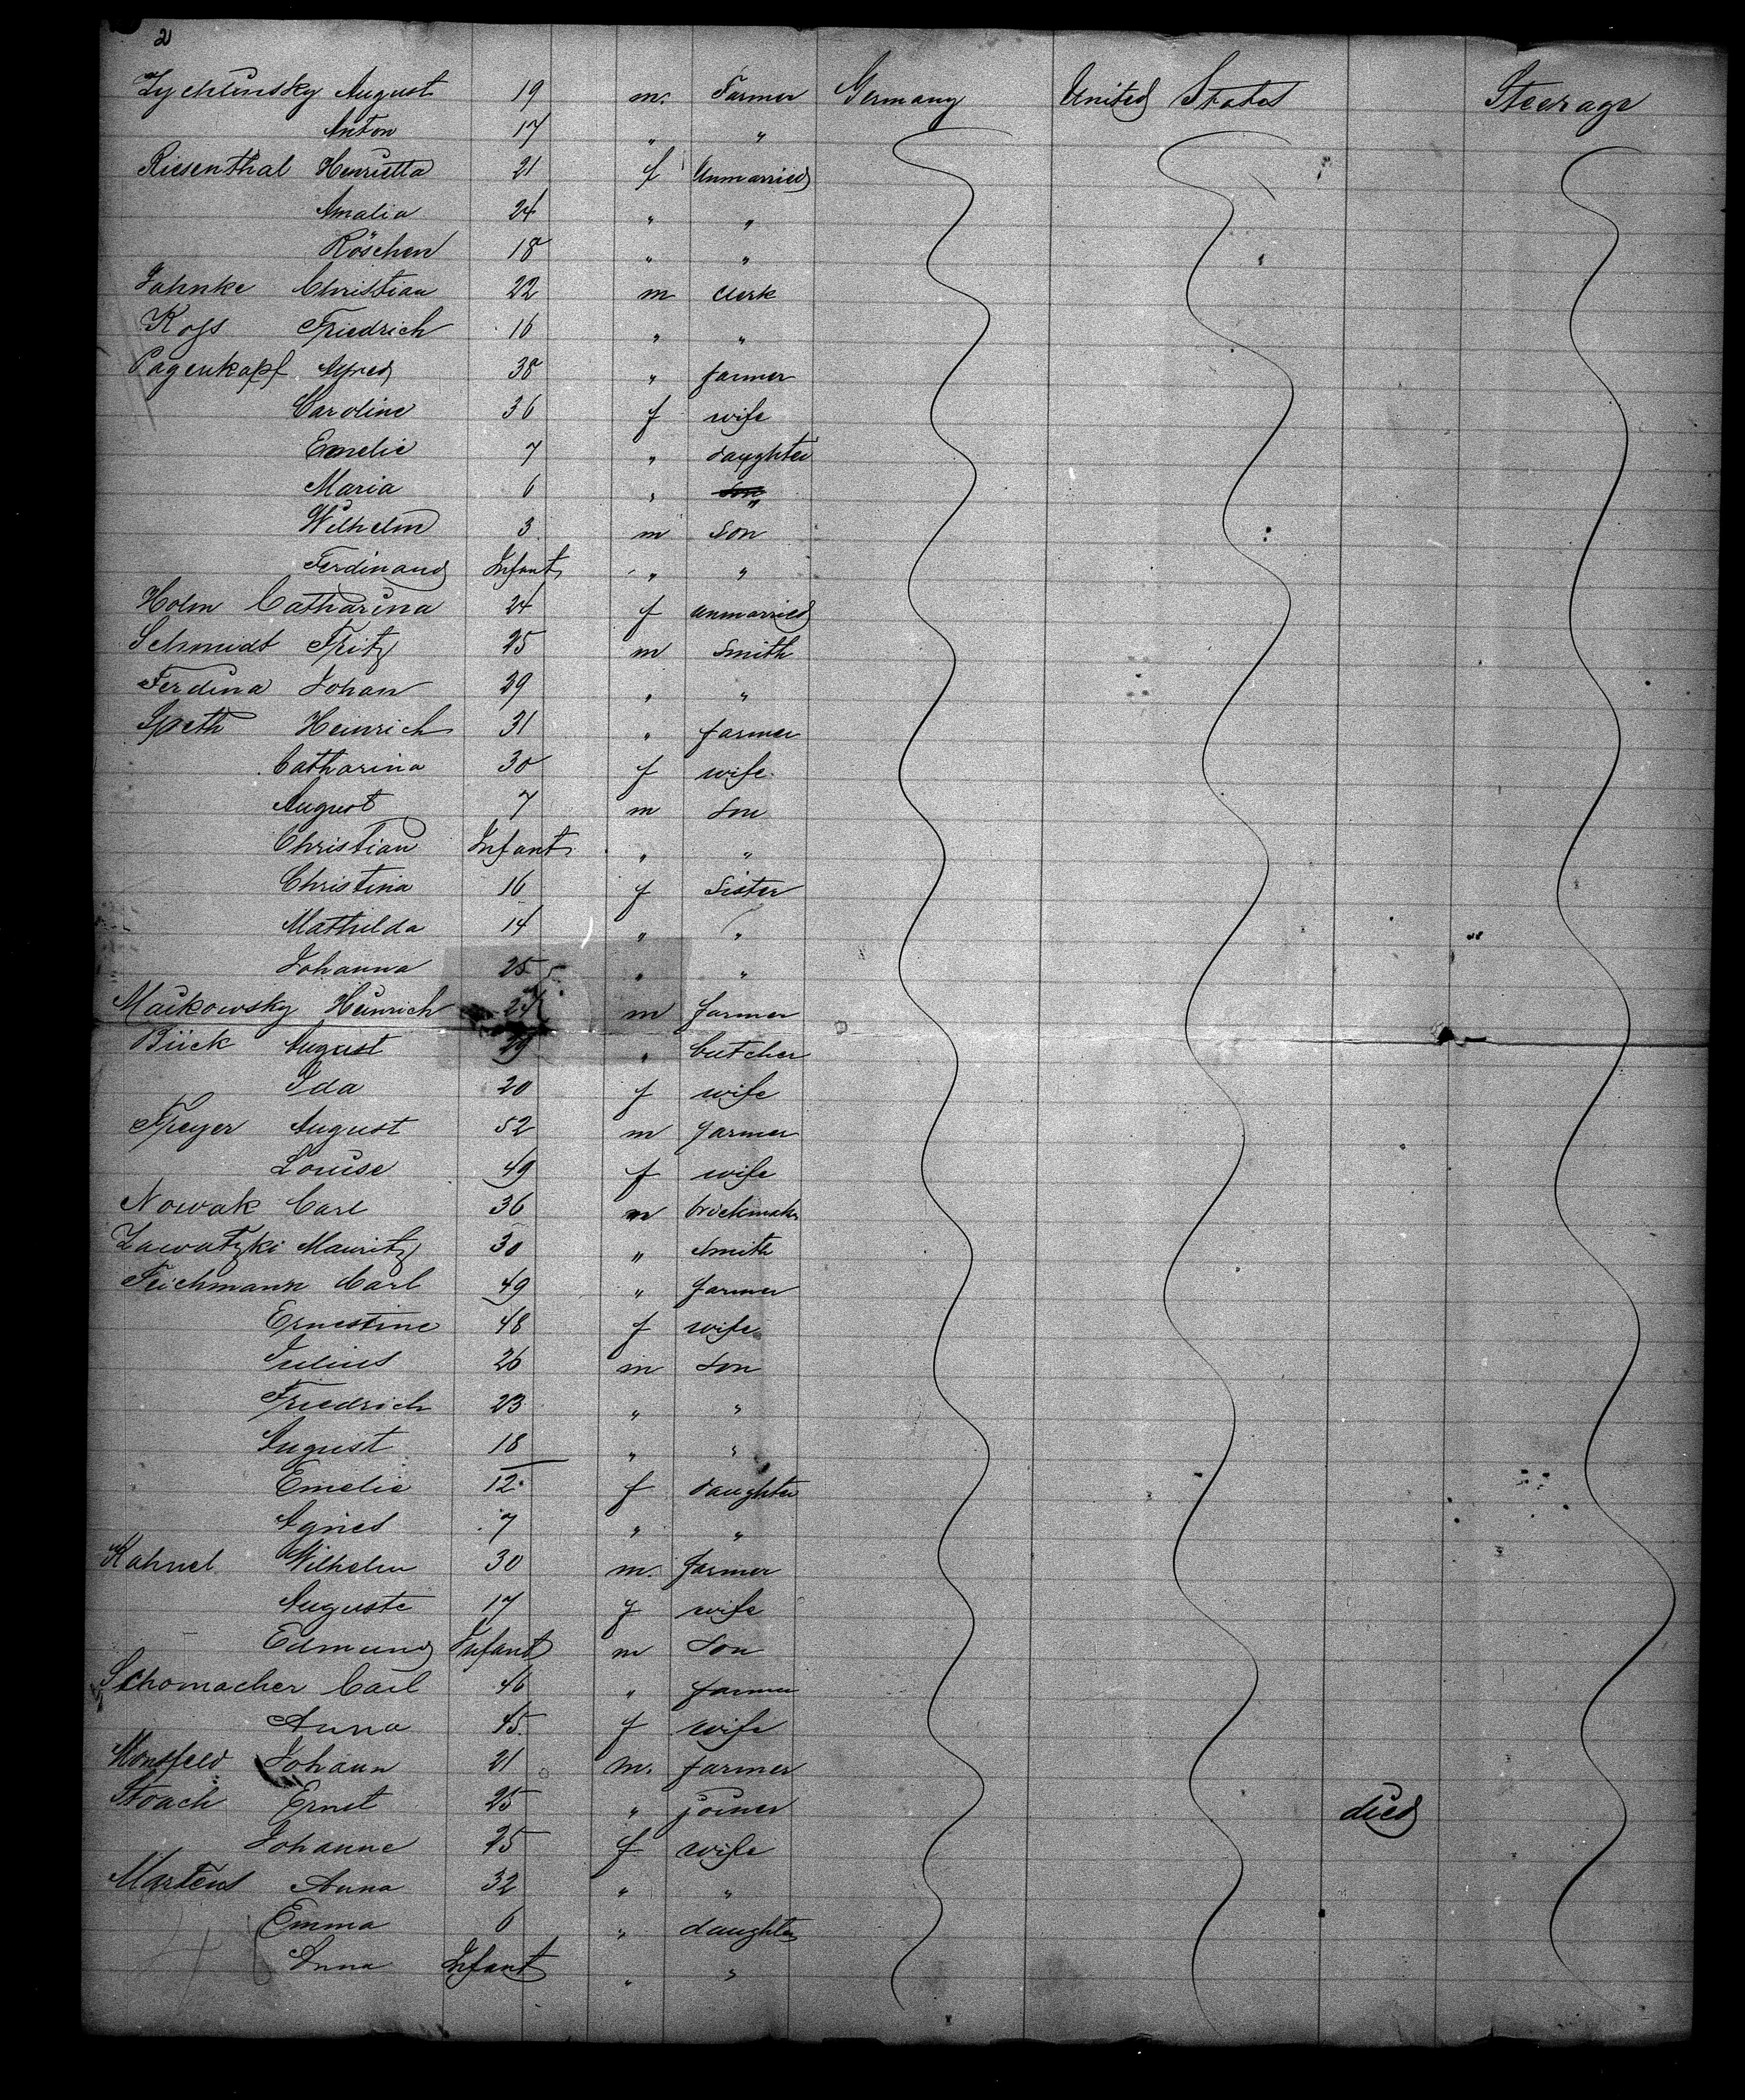 2
Zychlinsky August 19 m. Farmer Germany United States Steerage
Anton 17 " "
Riesenthal Henrietta 21 f Unmarried
Amalia 24 " "
Röschen 18 " "
Jahnke Christian 22 m Clerk
Friedrich 16 " "
Pagenkopf Alfred 38 " farmer
Caroline 36 f wife
Emelie 7 " daughter
Maria 6 " "
Wilhelm 3 m son
Ferdinand Infant " "
Holm Catharina 24 f unmarried
Schmidt Fritz 25 m Smith
Ferdina Johan 29 " "
Speth Heinrich 31 " farmer
Catharina 30 f wife
August 7 m son
Christian Infant " "
Christina 16 f Sister
Mathilda 14 " "
Johanna 25 " "
Maikowsky Heinrich 24 m farmer
Bück August 29 " butcher
Ida 20 f wife
Freyer August 52 m farmer
Louise 49 f wife
Nowak Carl 36 m brickmaker
Zawatzki Mauritz 30 " Smith
Teichmann Carl 49 " farmer
Ernestine 48 f wife
Julius 26 m son
Friedrich 23 " "
August 18 " "
Emelie 12 f daughter
Agnes 7 " "
Kahnel Wilhelm 30 m. farmer
Auguste 17 f wife
Edmund Infant m Son
Schomacher Carl 46 " farmer
Anna 45 f wife
Johann 21 m. farmer
Stoach Ernst 25 " joiner died
Johanne 25 f wife
Martens Anna 32 " "
Emma 6 " daughter
Anna Infant " "